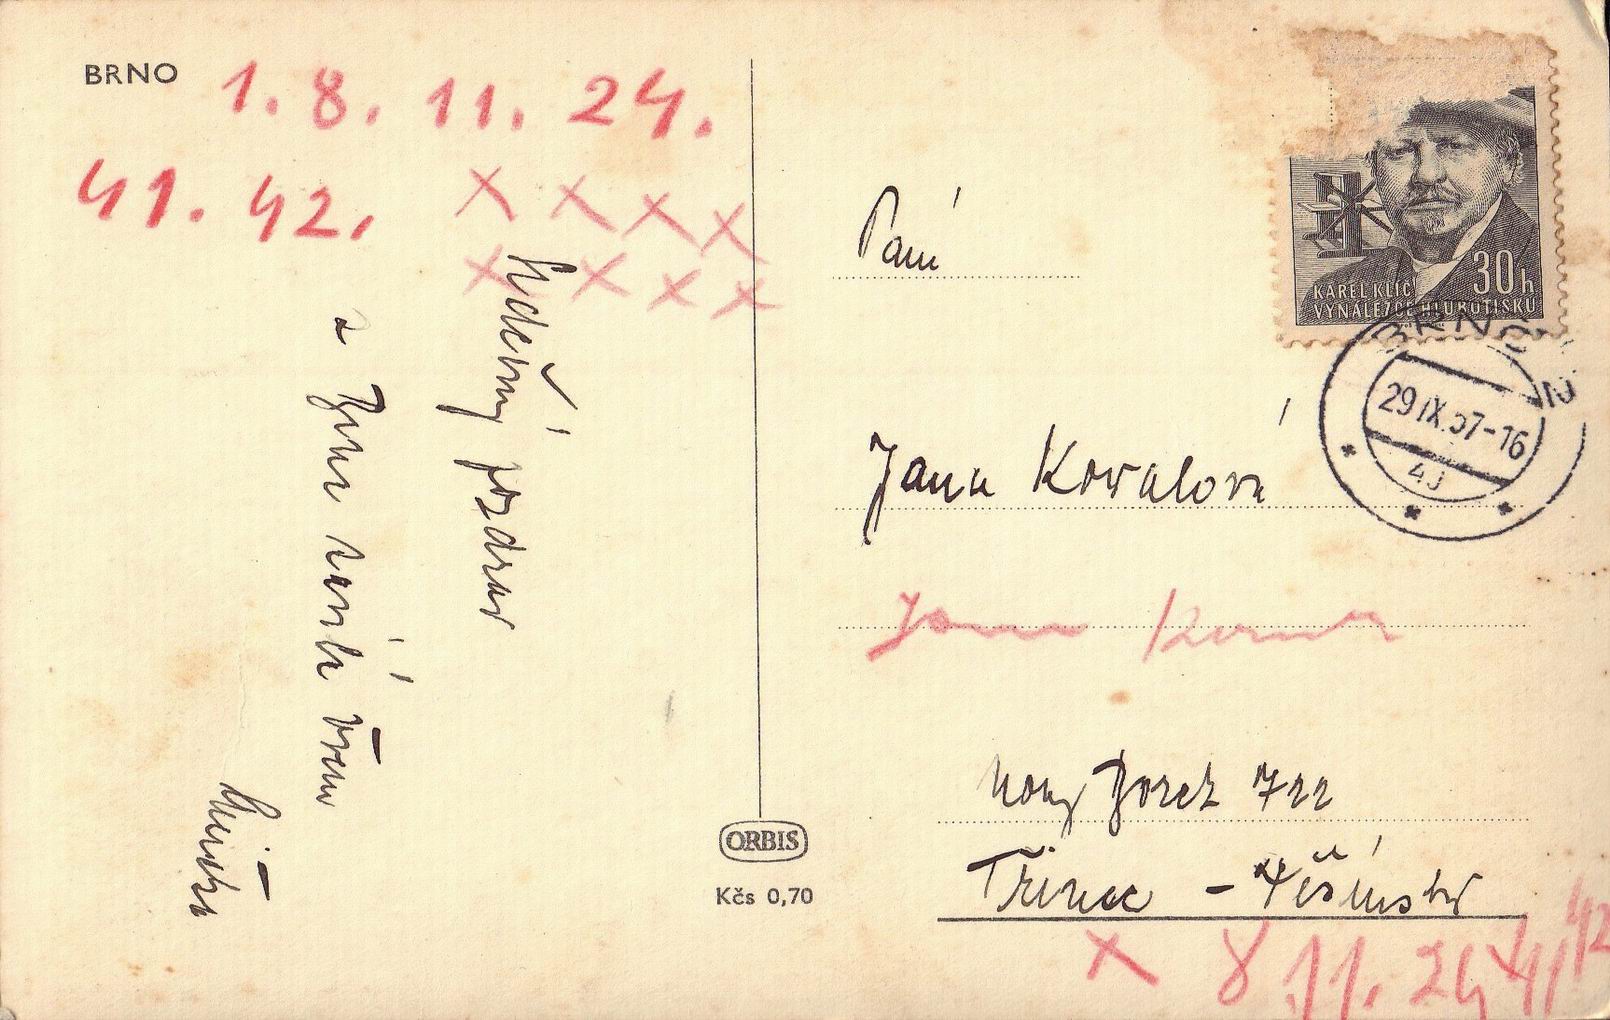 BRNO
1. 8. 11. 24.
41. 42. X X X X
X X X X
Srdečný pozdrav
z Brna
Paní
Jana Kovalová
Jana
Nový Borek 722
Třinec - Těšínsko
X 8 11. 24 41 42
ORBIS
Kčs 0,70
30h
KAREL KLÍČ
VYNÁLEZCE HLUBOTISKU
BRNO 2
29.IX.57-16